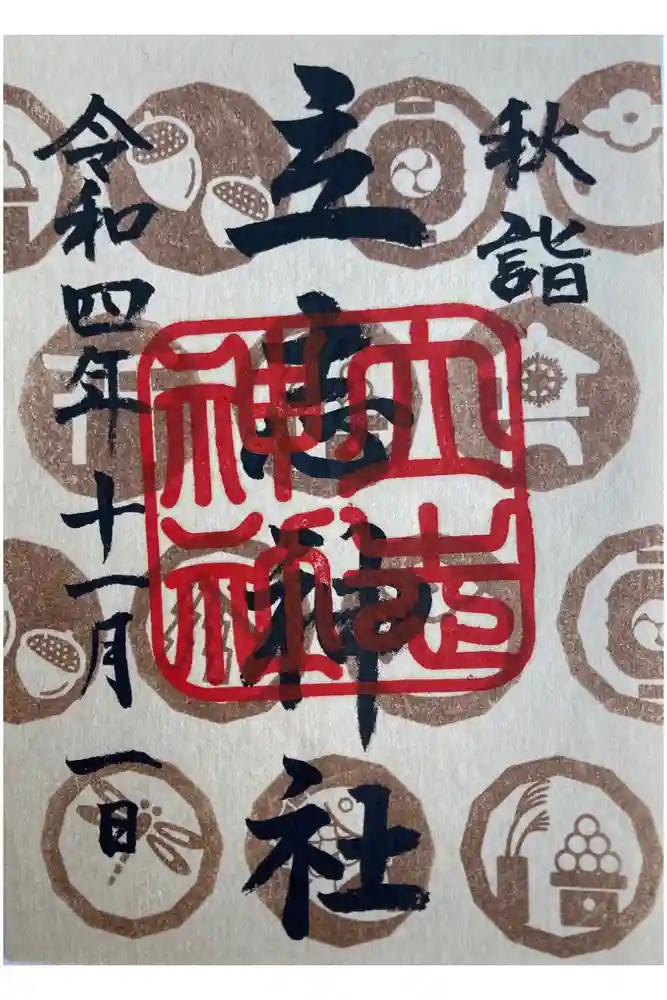 秋詣
立志神社
令和四年十一月一日
立志神社